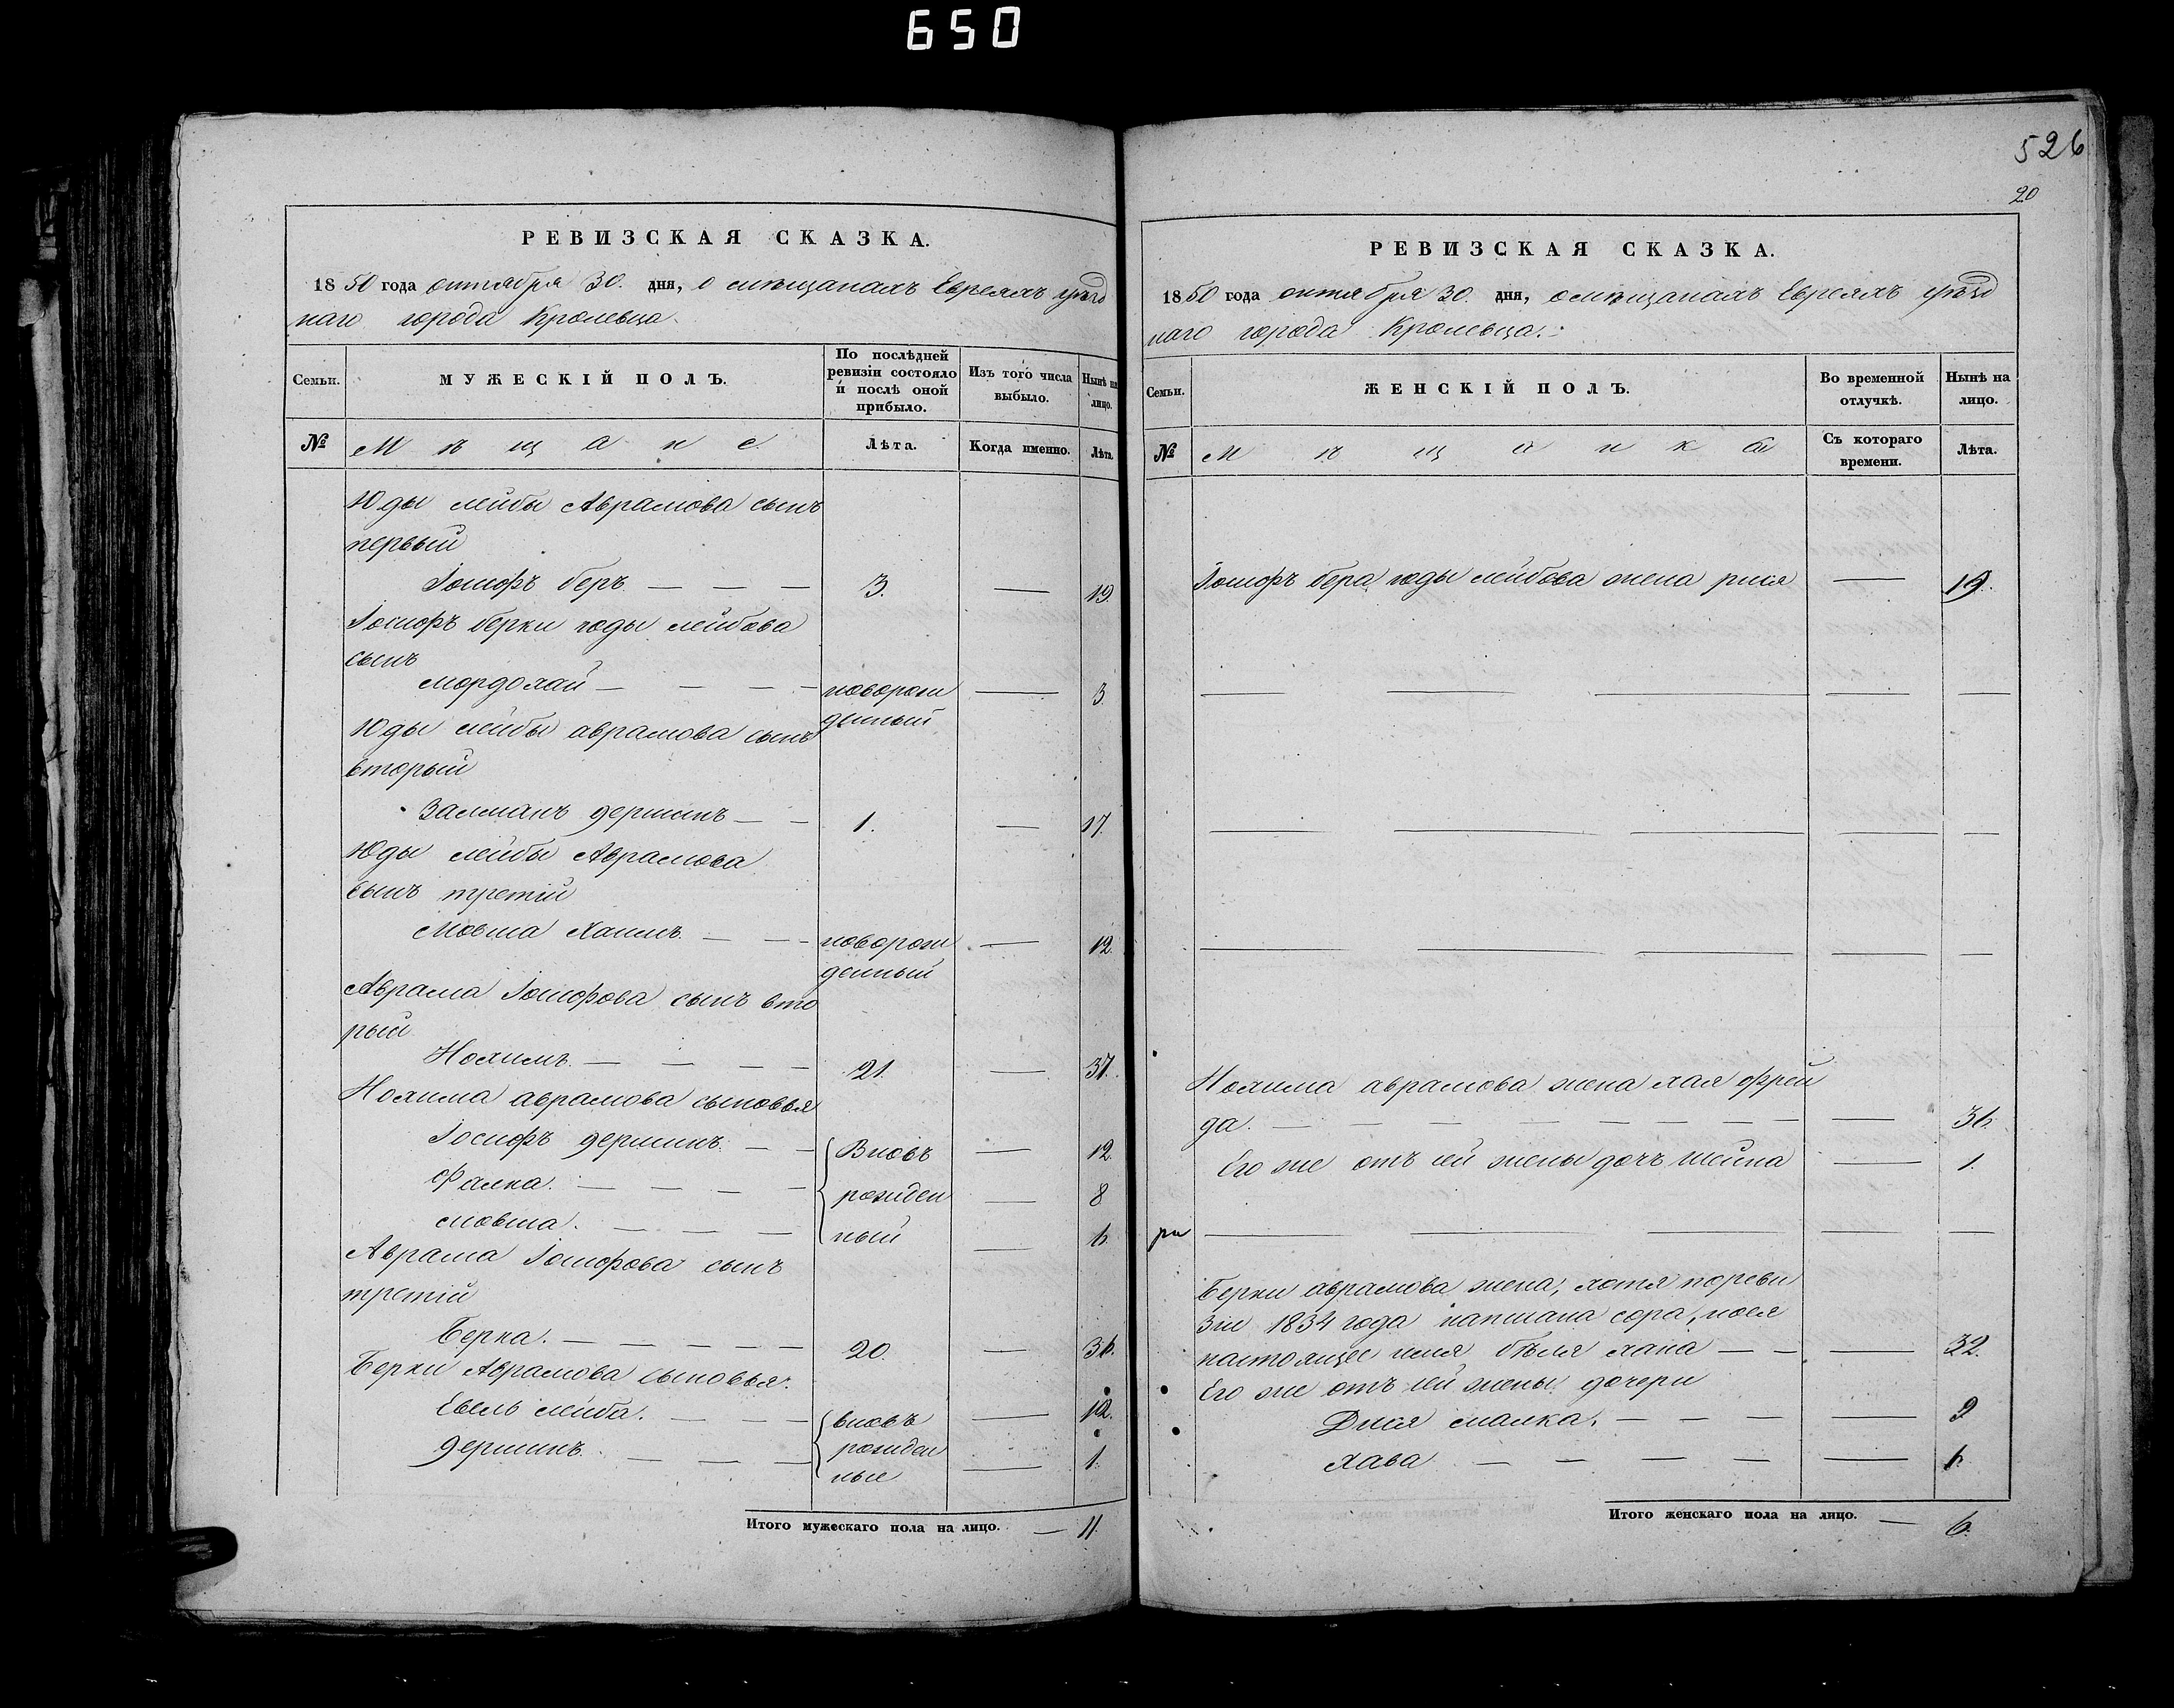 650
РЕВИЗСКАЯ СКАЗКА.
1850 года октября 30. дня, о мѣщанахъ Евреяхъ уѣзд
наго города Кролевца
Семьи.
МУЖЕСКІЙ ПОЛЪ.
По послѣдней
ревизіи состояло
и послѣ оной
прибыло.
Изъ того числа
выбыло.
Нынѣ на
лицо.
№
Мѣщане.
Лѣта.
Когда именно.
Лѣта.
Юды лейбы Аврамова сынъ
первый
Іосифъ беръ. — — — 3. — 19.
Іосифъ берки юды лейбова
сынъ
мордохай — — — — новорож — 3.
денный
Юды лейбы аврамова сынъ
вторый
Залманъ гершинъ — — 1. — 17.
Юды лейбы Аврамова
сынъ третій
Мовша Хаимъ. — — — новорож — 12.
денный
Аврама Іосифова сынъ вто
рый
Нохимъ. — — — — 21. — 37.
Нохима аврамова сыновья
Іосифъ гершинъ. — — Вновь — 12.
Фалка. — — — — рожден — 8
мовша. — — — ный — 6.
Аврама Іосифова сынъ
третій
Берка. — — — — 20. — 36.
Берки Аврамова сыновья.
Евель лейба. — — — вновь — 12.
гершинъ. — — — рожден — 1.
ные
Итого мужескаго пола на лицо. — 11.
526
20
РЕВИЗСКАЯ СКАЗКА.
1850 года октября 30. дня, о мѣщанахъ Евреяхъ уѣзд
наго города Кролевца.
Семьи.
ЖЕНСКІЙ ПОЛЪ.
Во временной
отлучкѣ.
Нынѣ на
лицо.
№
Мѣщанки
Съ котораго
времени.
Лѣта.
Іосифъ бера юды лейбова жена рися — 19.
Нохима аврамова жена хая фрей
да. — — — — — — — — — 36.
Его же отъ сей жены дочь шейна — 1.
Берки аврамова жена, хотя по реви
зіи 1834 года написана сора, но ея
настоящее имя бѣля хана — — — 32.
Его же отъ сей жены дочери
Дися малка. — — — — 9
хава — — — — — 6.
Итого женскаго пола на лицо. — 6.